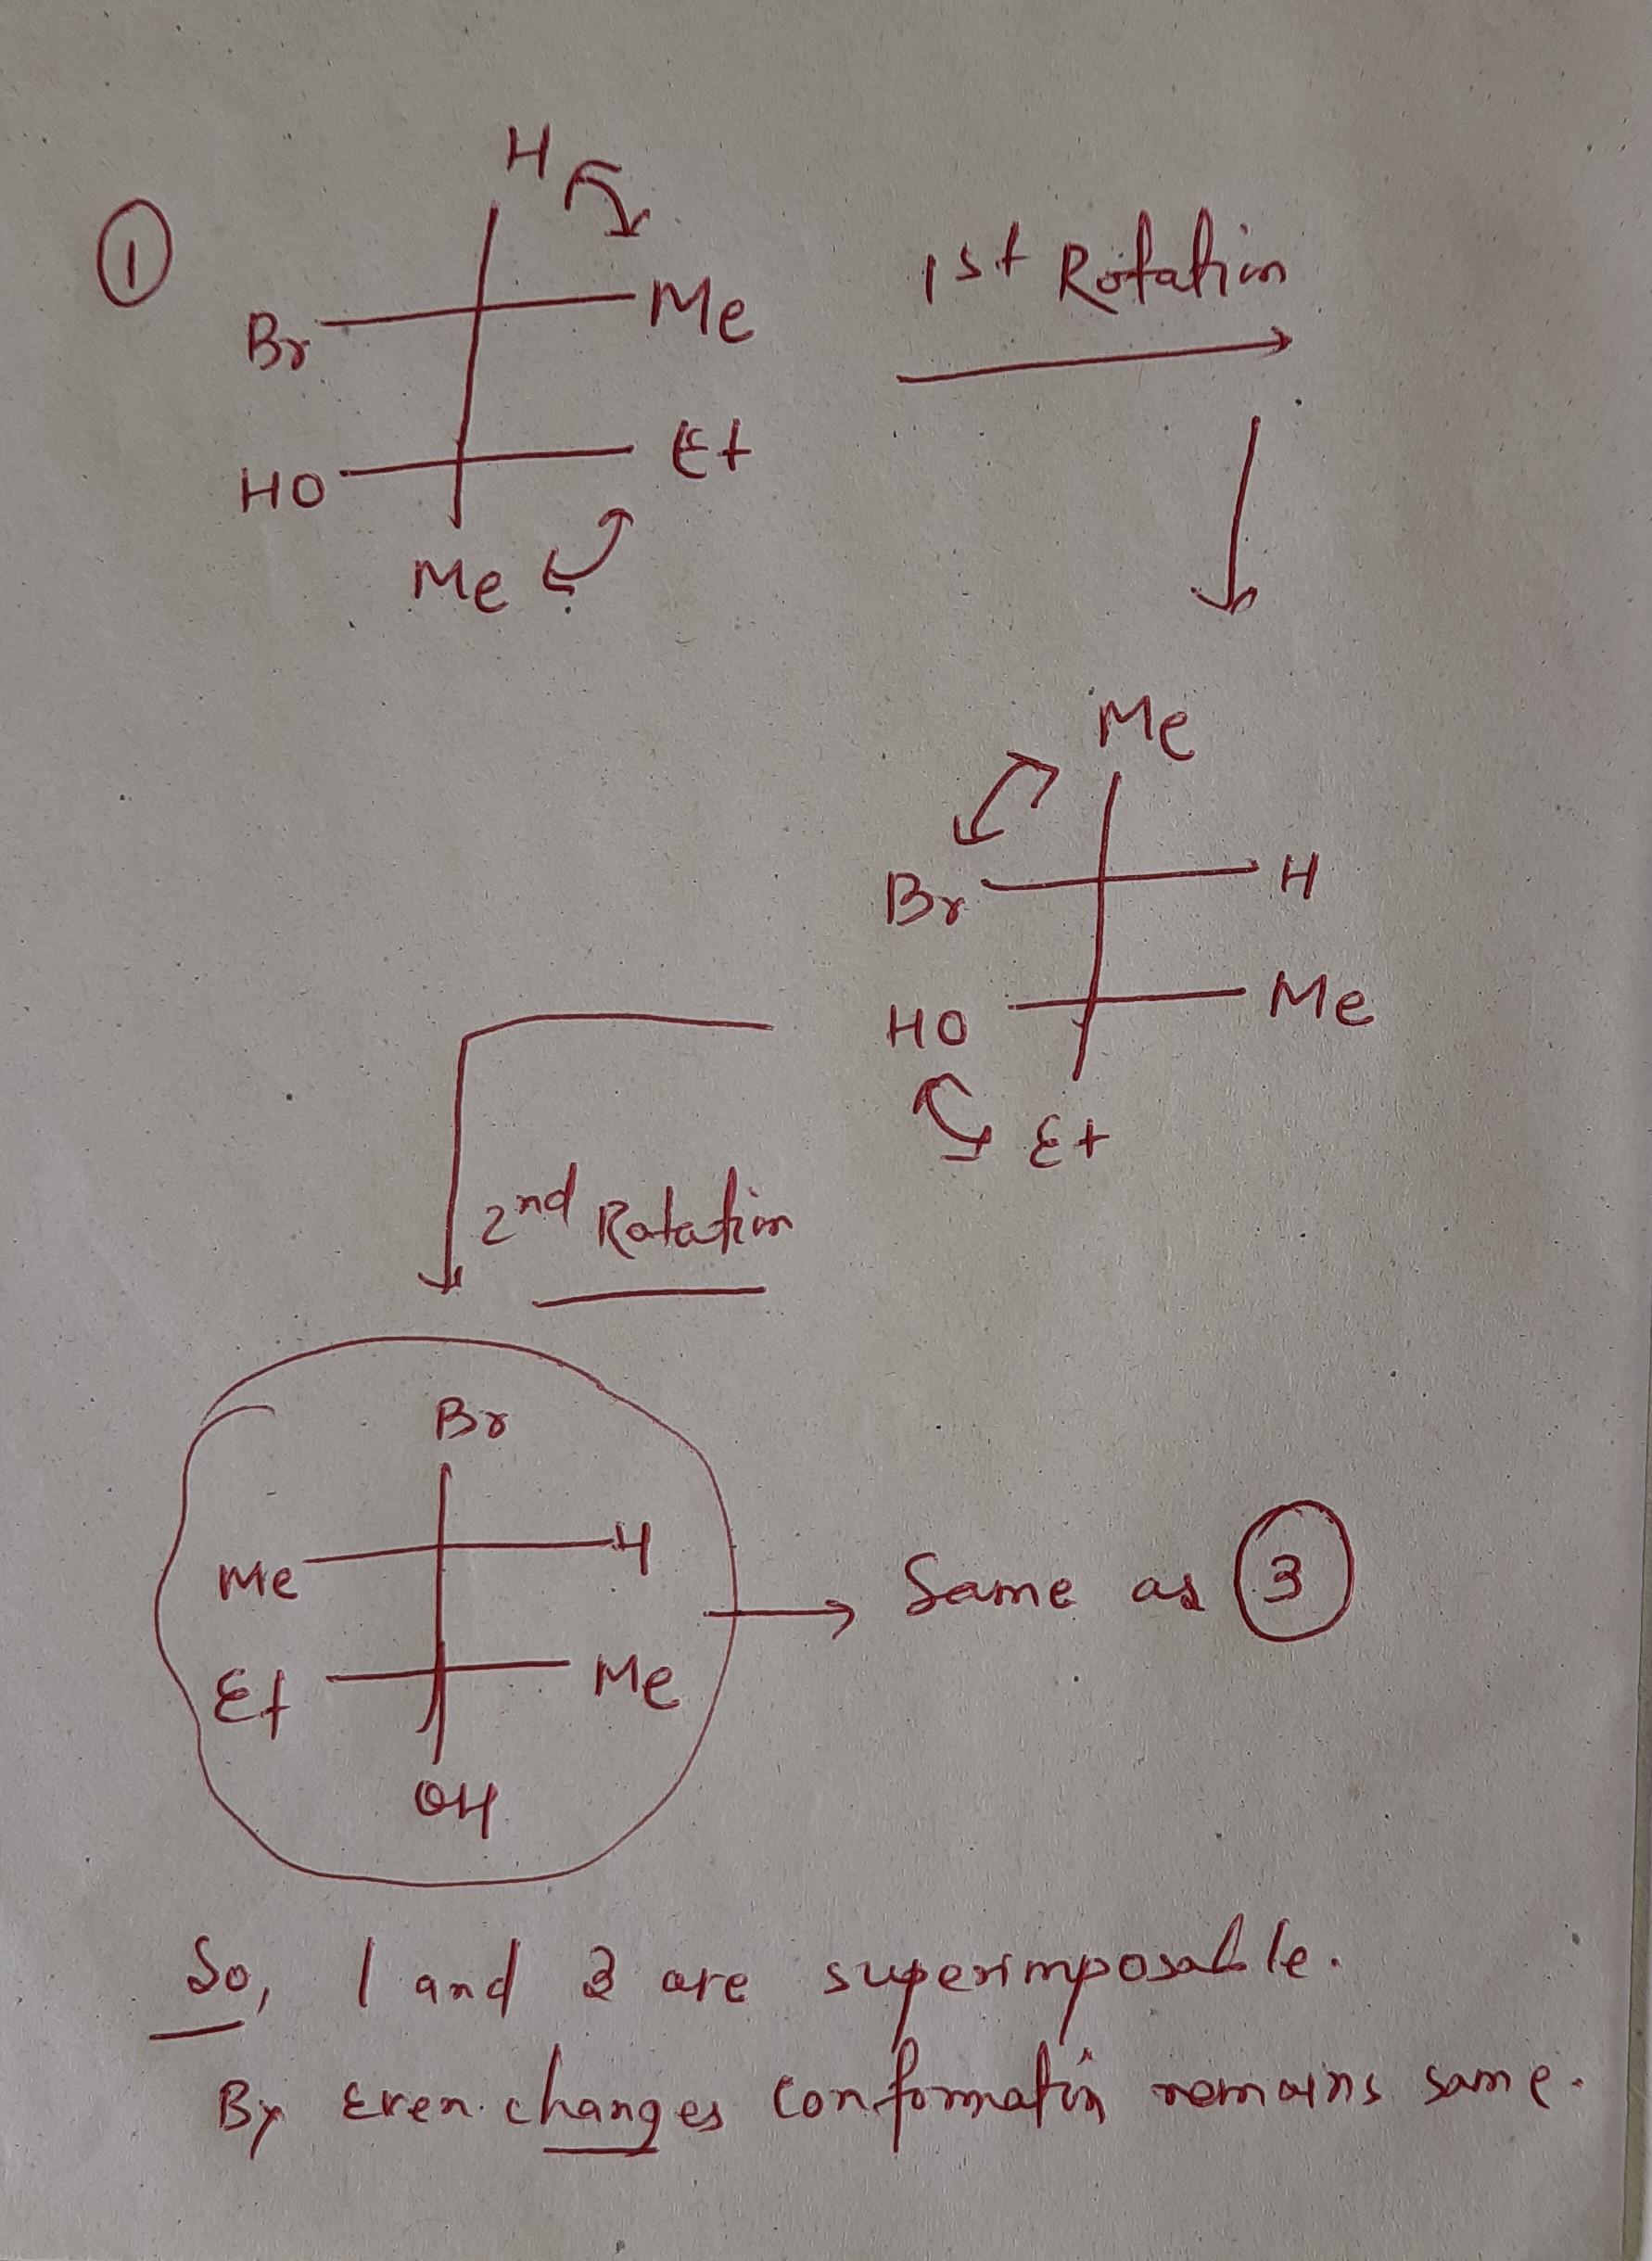 ①
H
Br Me
HO Et
Me
1st Rotation
Me
Br H
HO Me
Et
2nd Rotation
Br
Me H
Et Me
OH
Same as ③
So, 1 and 3 are superimposable.
By Even changes conformatin remains same.